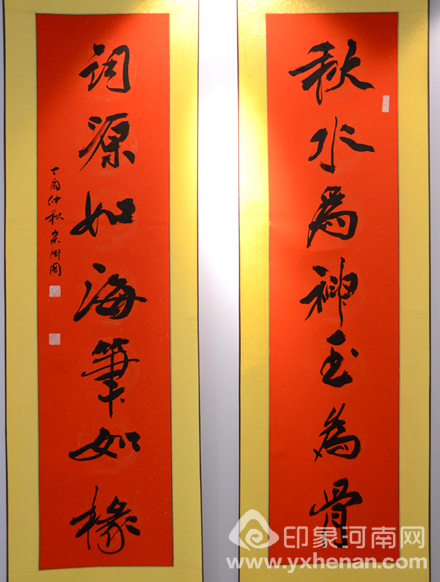 秋水為神玉為骨
詞源如海筆如椽
丁酉仲秋
印象河南网
www.yxhenan.com